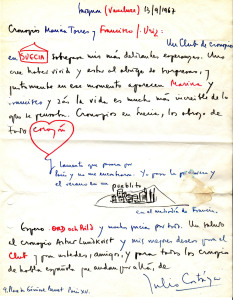 Saignon (Vaucluse) 13/9/1967
Cronopios Marina Torres y Francisco Uriz:
Un Club de cronopios
en SUECIA sobrepasa mis más delirantes esperanzas. Uno
cree haber vivid y estar al abrigo de sorpresas, y
justamente en ese momento aparecen Marina y
Francisco y zás la vida es mucho más increíble de lo
que se pensaba. Cronopios en Suecia, los abrazo de
todo corazón
Lamento que pasara por
París y no me encontrara. Yo paso la primavera y
el verano en un pueblito
en el mediodía de Francia.
Espero ORD och BILD y mucha gracias por todo. Un saludo
al cronopio Artur Lundkvist y mis mejores deseos para el
Club, para ustedes, amigos, y para todos los cronopios
de habla española que andan por allá, de
Julio Cortázar
9, Place du Général Beuret Paris XV.